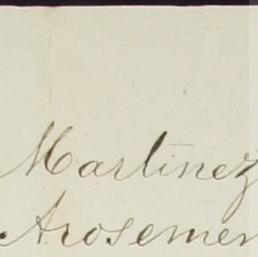 Martinez
Arosemen